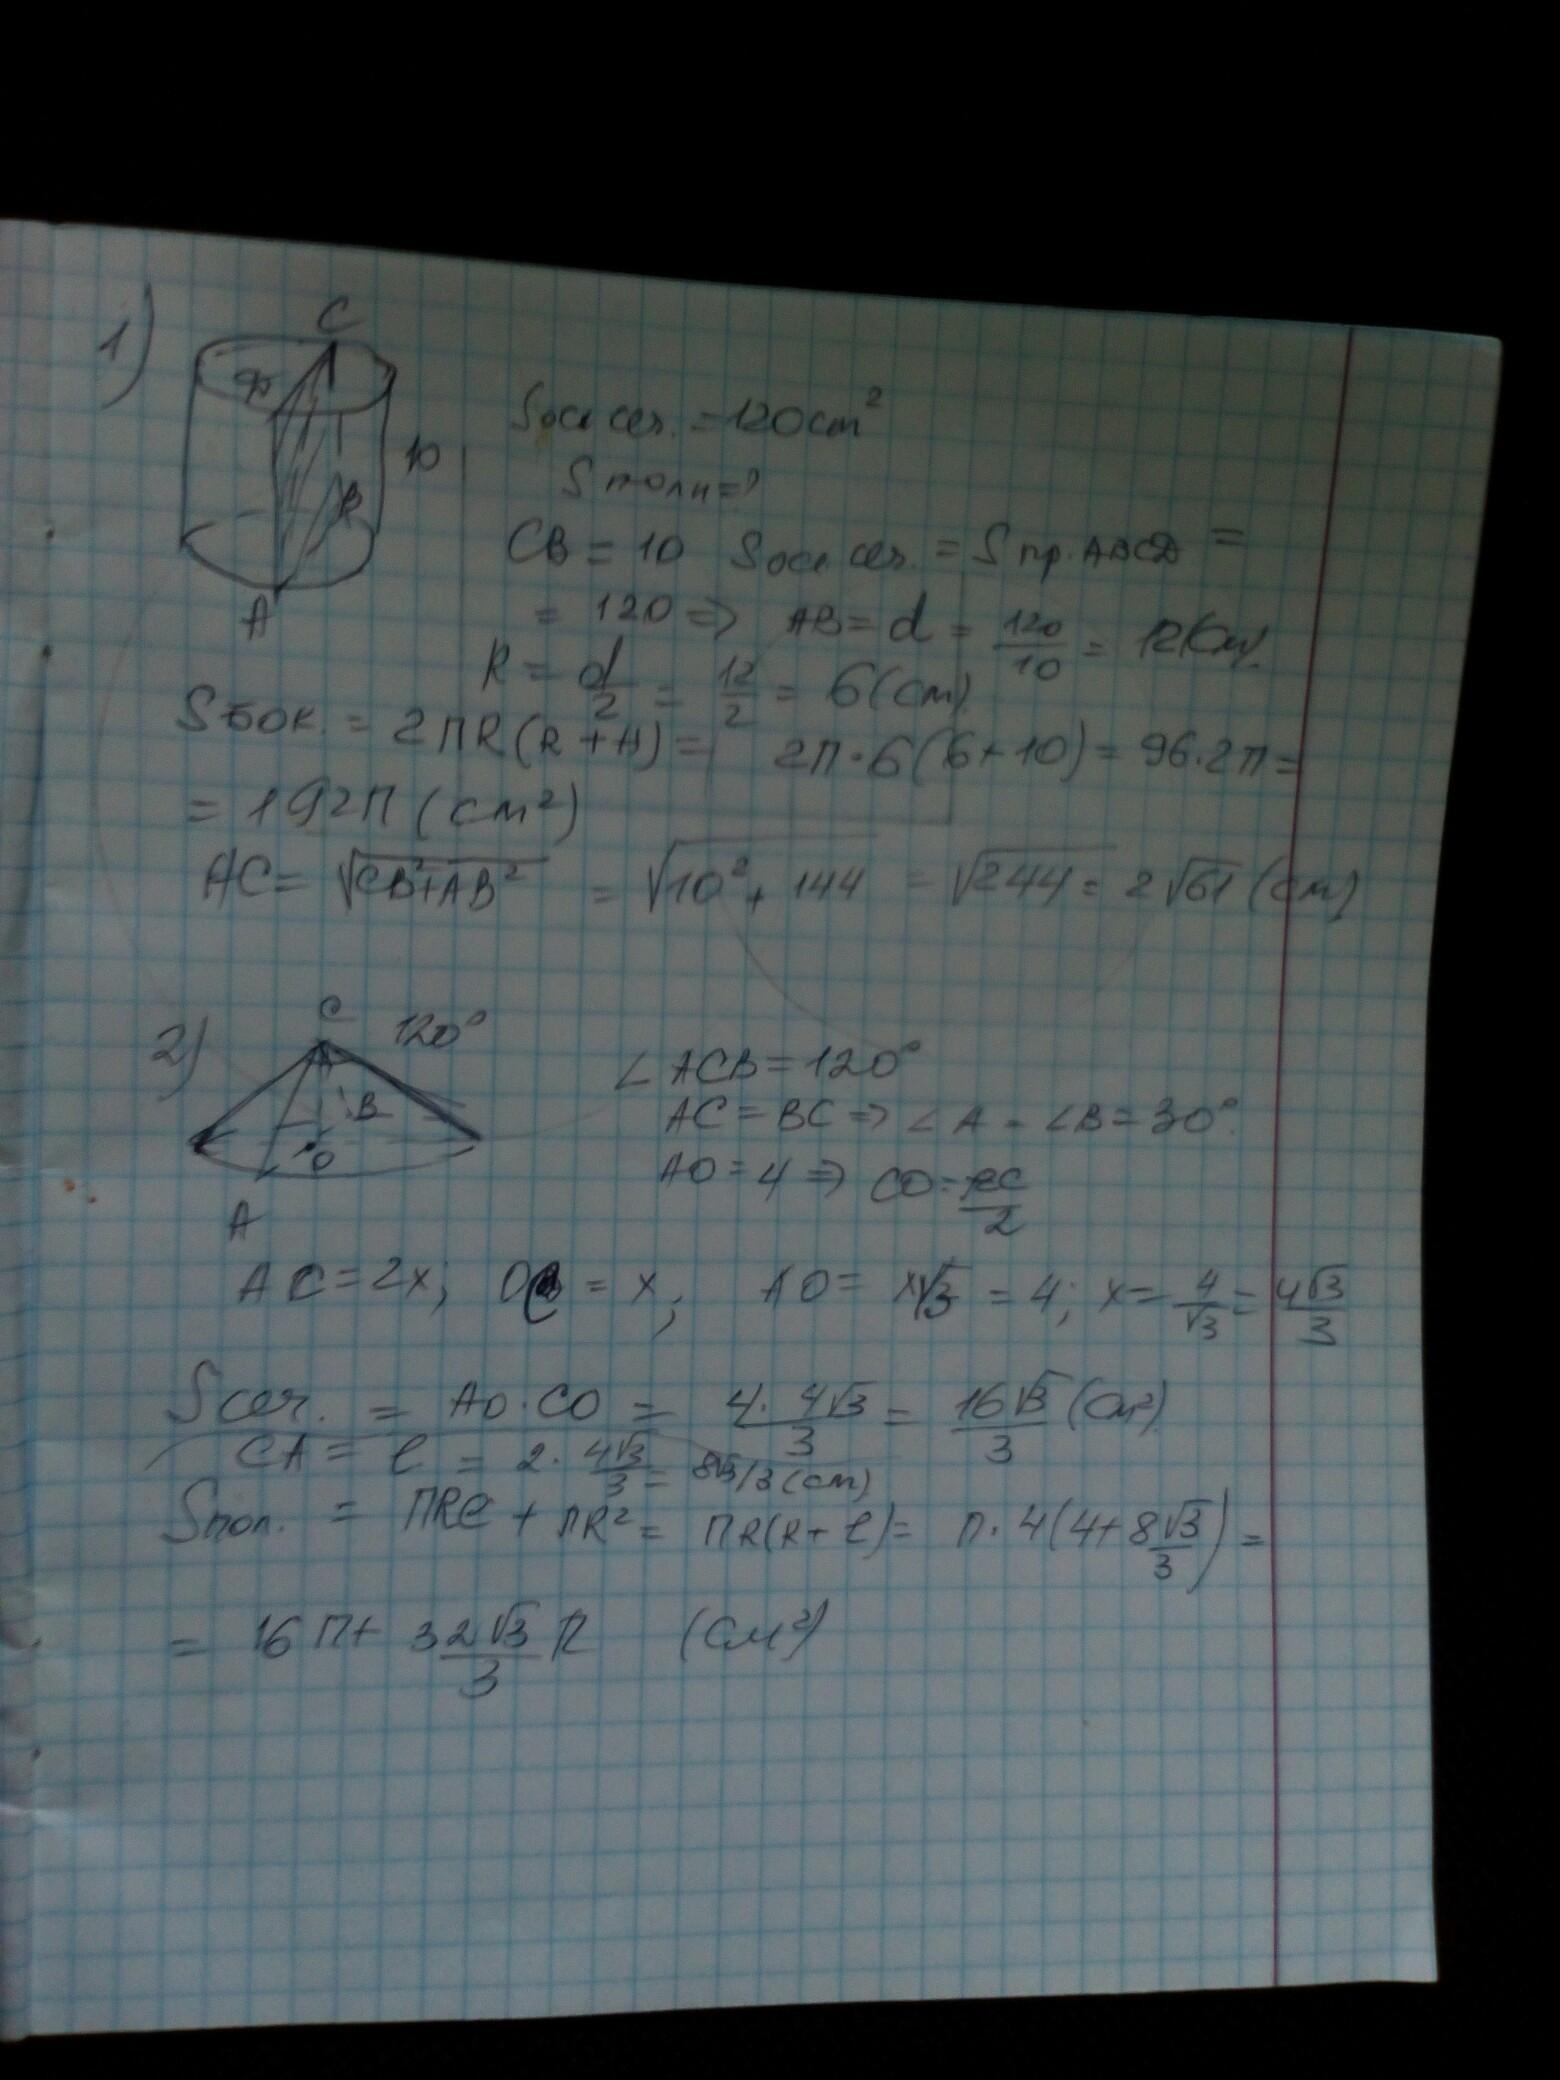 1)
C
D
10
B
A
Sосе сеч. = 120 cm²
S полн = ?
CB = 10 Sосе сеч. = S пр. ABCD =
= 120 => AB = d = 120/10 = 12 (см)
R = d/2 = 12/2 = 6 (см)
Sбок. = 2ПR(R+H) = 2П·6(6+10) = 96·2П =
= 192П (см²)
AC = √(CB²+AB²) = √(10² + 144) = √244 = 2√61 (см)
2)
C
120°
B
O
A
∠ACB = 120°
AC = BC => ∠A = ∠B = 30°.
AO = 4 => CO = AC/2
AC = 2x; OC = x; AO = x√3 = 4; x = 4/√3 = 4√3/3
Sсеч. = AO·CO = 4·4√3/3 = 16√3/3 (см²)
CA = l = 2·4√3/3 = 8√3/3 (см)
Sпол. = ПRl + ПR² = ПR(R+l) = П·4(4+8√3/3) =
= 16П + 32√3/3 П (см²)